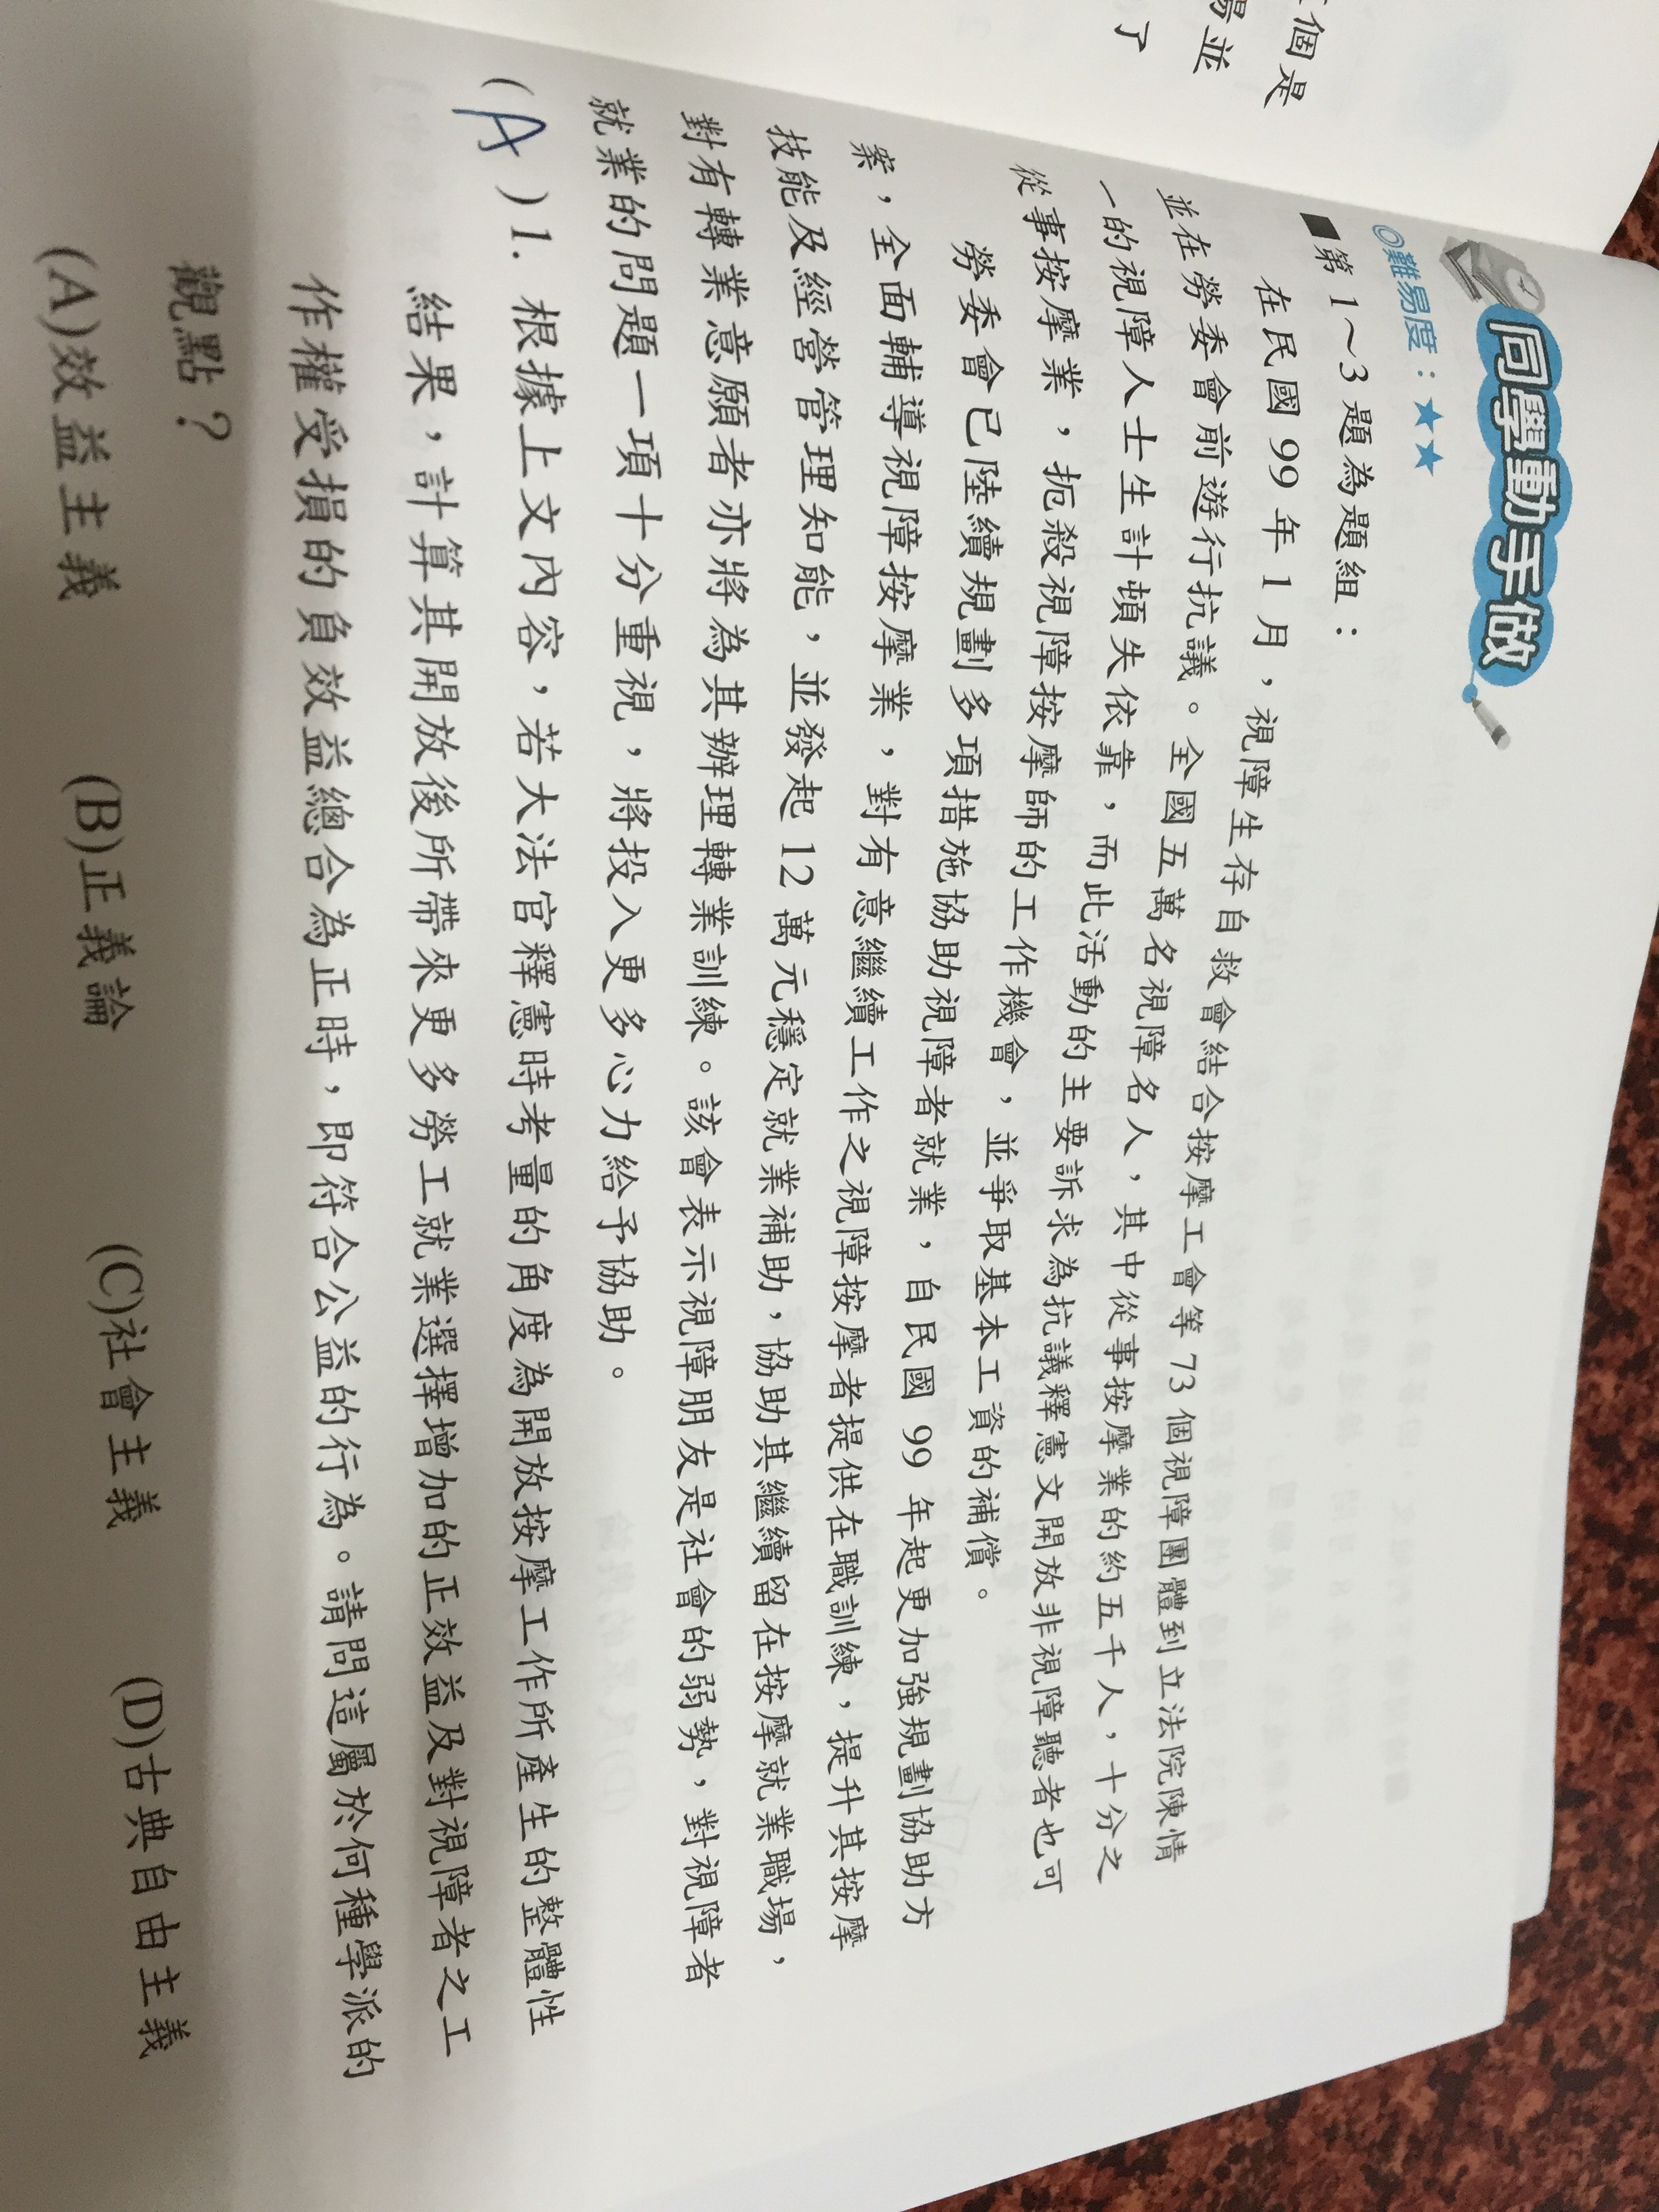 個是
易並
了
同學動手做
◎難易度：★★
■第 1～3 題為題組：
在民國 99 年 1 月，視障生存自救會結合按摩工會等 73 個視障團體到立法院陳情
並在勞委會前遊行抗議。全國五萬名視障名人，其中從事按摩業的約五千人，十分之
一的視障人士生計頓失依靠，而此活動的主要訴求為抗議釋憲文開放非視障聽者也可
從事按摩業，扼殺視障按摩師的工作機會，並爭取基本工資的補償。
勞委會已陸續規劃多項措施協助視障者就業，自民國 99 年起更加強規劃協助方
案，全面輔導視障按摩業，對有意繼續工作之視障按摩者提供在職訓練，提升其按摩
技能及經營管理知能，並發起 12 萬元穩定就業補助，協助其繼續留在按摩就業職場，
對有轉業意願者亦將為其辦理轉業訓練。該會表示視障朋友是社會的弱勢，對視障者
就業的問題一項十分重視，將投入更多心力給予協助。
(A)1. 根據上文內容，若大法官釋憲時考量的角度為開放按摩工作所產生的整體性
結果，計算其開放後所帶來更多勞工就業選擇增加的正效益及對視障者之工
作權受損的負效益總合為正時，即符合公益的行為。請問這屬於何種學派的
觀點？
(A)效益主義 (B)正義論 (C)社會主義 (D)古典自由主義